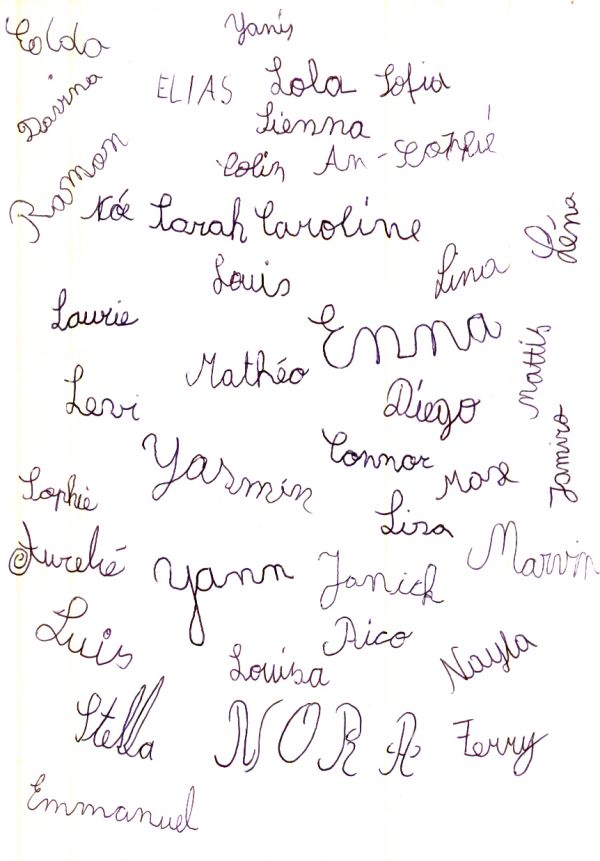 Yanis
Eolda
Davina
ELIAS Lola Sofia
Sienna
Colin An-Sophie
Ramon
Noé Sarah Caroline
Léna
Louis Lina
Laurie
Enna
Mattis
Mathéo
Levi Diego
Yasmin Connor
Jamiro
Sophie Max
Lisa
Aurelié Yann Janick Marvin
Luis Rico
Louisa Nayla
Stella NORA Ferry
Emmanuel